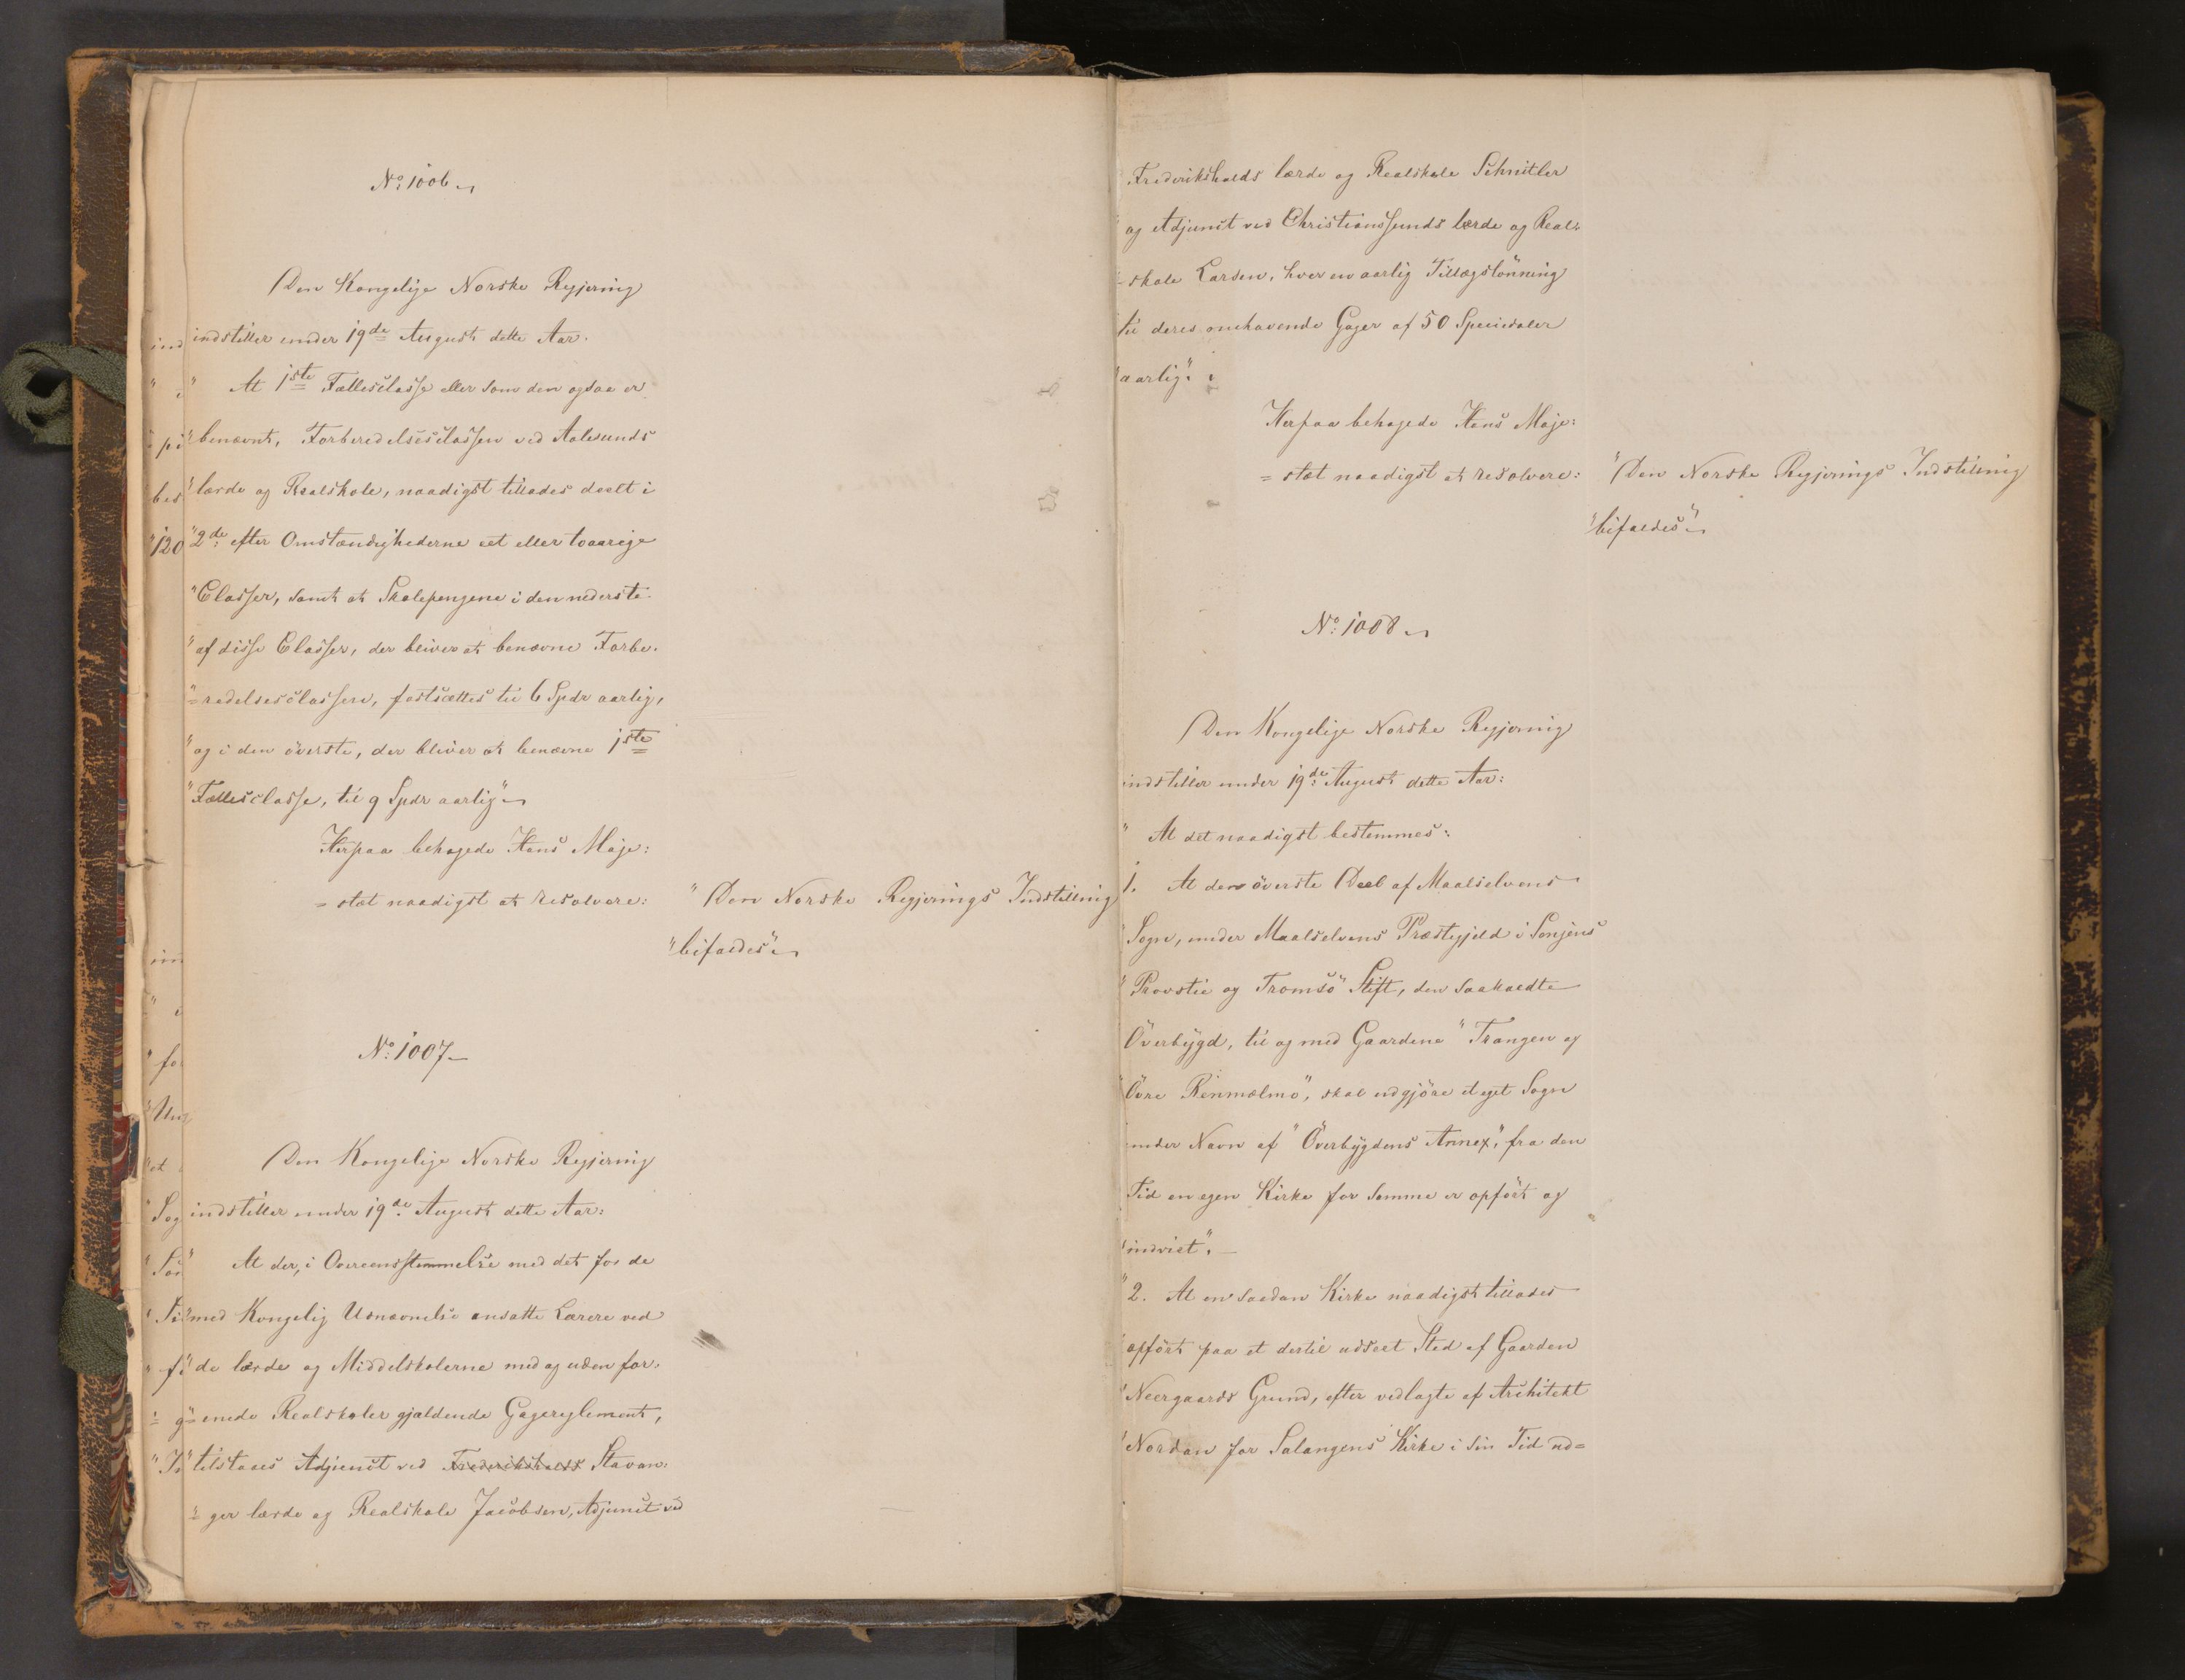 No: 1006
Den Kongelige Norske Regjering
indstiller under 19de August dette Aar.
" At 1ste Fællesclasse eller som den ogsaa er
"benævnt, Forberedelsesclassen ved Aalesunds
"lærde og Realskole, naadigst tillades deelt i
"2de efter Omstændighederne eet eller toaarige
"Classer, samt at Skolepengene i den nederste
"af disse Classer, der bliver at benævne Forbe-
"=redelsesclassen, fastsættes til 6 Spdr aarlig,
"og i den överste, der bliver at benævne 1ste
"Fællesclasse, til 9 Spdr aarlig"
Herpaa behagede Hans Maje:
=stæt naadigst at resolvere:
"Den Norske Regjerings Indstilling
"bifaldes"
No: 1007
Den Kongelige Norske Regjering
indstiller under 19de August dette Aar:
" At der, i Overeensstemmelse med det for de
"med Kongelig Udnævnelse ansatte Lærere ved
"de lærde og Middelskolerne med og uden for-
"=enede Realskoler gjældende Gagereglement,
"tilstaaes Adjunct ved Frederikshalds Stavan-
"=ger lærde og Realskole Jacobsen, Adjunct ved
Frederikshalds lærde og Realskole Schnitler
"og Adjunct ved Christianssunds lærde og Real-
"=skole Larsen, hver en aarlig Tillægslönning
til deres omhavende Gager af 50 Speciedaler
"aarlig".
Herpaa behagede Hans Maje:
=stæt naadigst at resolvere:
"Den Norske Regjerings Indstilling
"bifaldes"
No: 1008
Den Kongelige Norske Regjering
indstiller under 19de August dette Aar:
" At det naadigst bestemmes:
1. At den överste Deel af Maalselvens
"Sogn, under Maalselvens Præstegjeld i Senjens
"Provstie og Tromsö Stift, den saakaldte
Överbygd, til og med Gaardene "Trangen og
"Övre Renmælmo", skal udgjöre et eget Sogn
under Navn af "Överbygdens Annex", fra den
Tid en egen Kirke for samme er opfört og
"indviet".
"2. At en saadan Kirke naadigst tillades
"opfört paa et dertil udseet Sted af Gaarden
"Neergaards Grund, efter vedlagte af Architekt
"Nordan for Salangens Kirke i sin Tid ud=